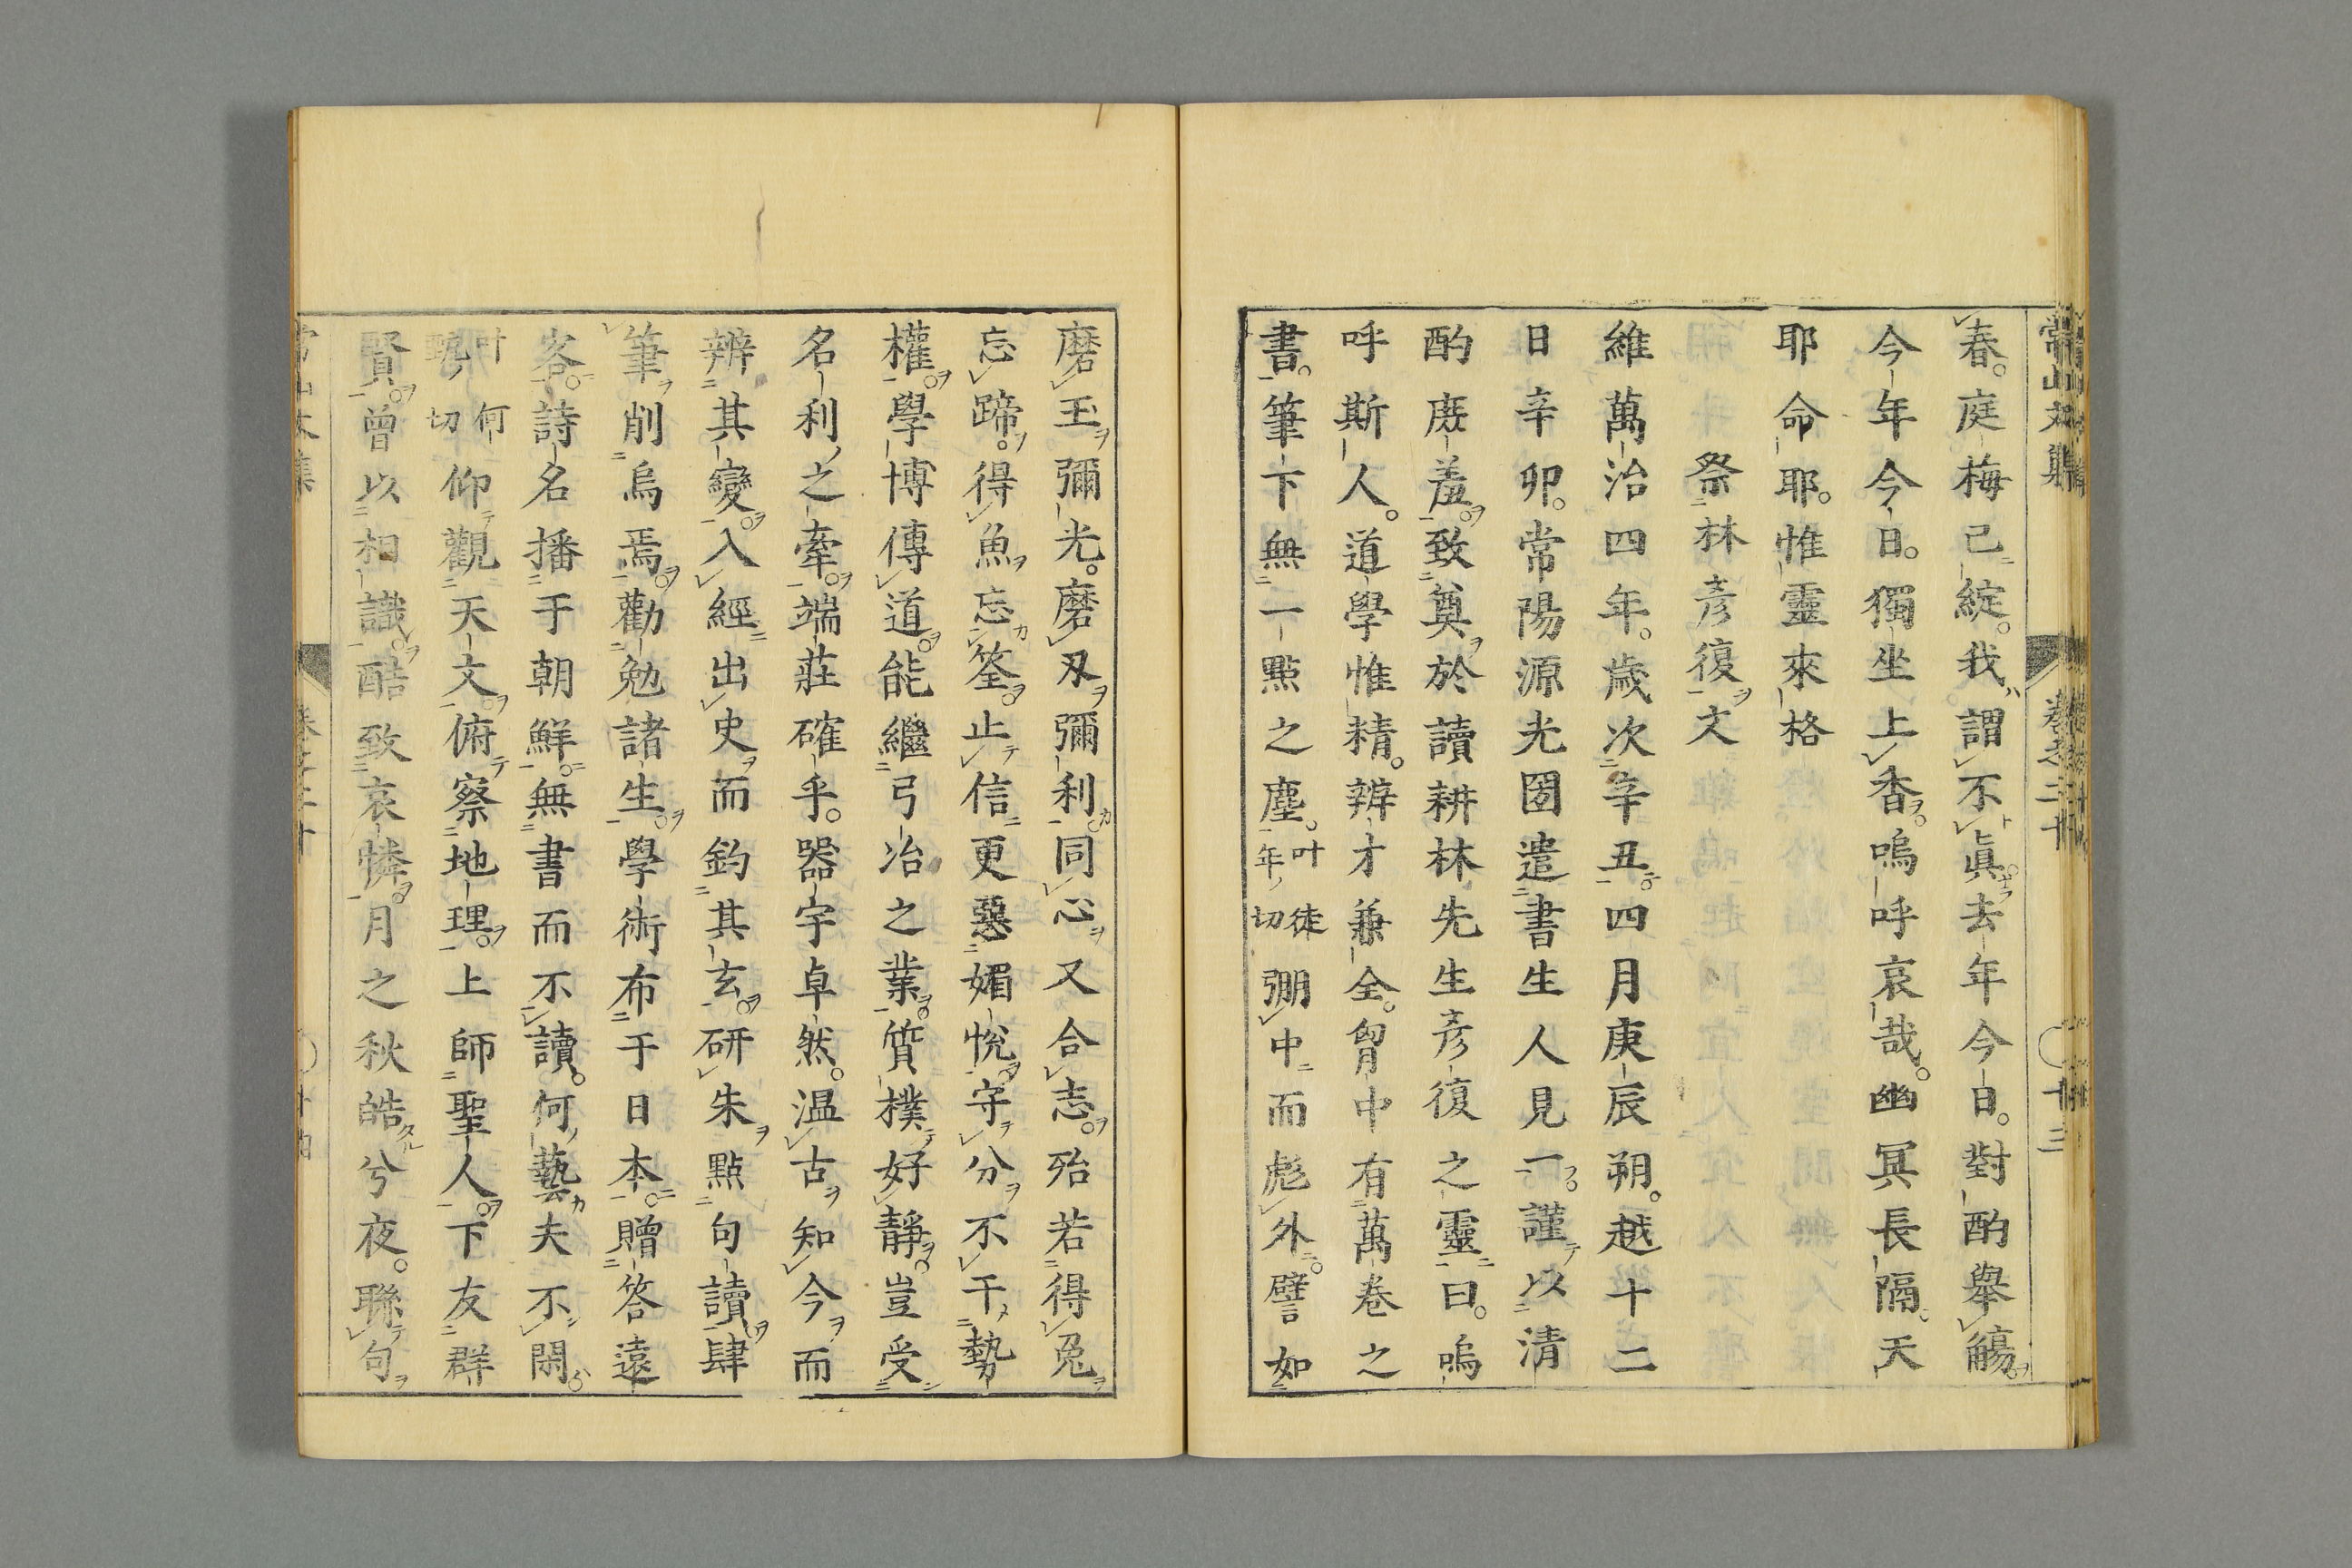 常山文集　卷之二十　十三
春庭梅已綻我謂不眞去年今日對酌舉觴
今年今日獨坐上香嗚呼哀哉幽冥長隔天
耶命耶惟靈來格
祭林彥復文
維萬治四年歲次辛丑四月庚辰朔越十二
日辛卯常陽源光圀遣書生人見一謹以清
酌庶羞致奠於讀耕林先生彥復之靈曰嗚
呼斯人道學惟精辨才兼全胷中有萬卷之
書筆下無一點之塵叶徒年切弸中而彪外譬如
磨玉彌光磨刄彌利同心又合志殆若得兔
忘蹄得魚忘筌止信更惡媚悅守分不干勢
權學博傳道能繼弓冶之業質樸好靜豈受
名利之牽端莊確乎器宇卓然温古知今而
辨其變入經出史而鈞其玄研朱點句讀肆
筆削烏焉勸勉諸生學術布于日本贈答遠
客詩名播于朝鮮無書而不讀何藝夫不閑
叶何甄切仰觀天文俯察地理上師聖人下友群
賢曾以相識酷致哀憐月之秋皓兮夜聯句